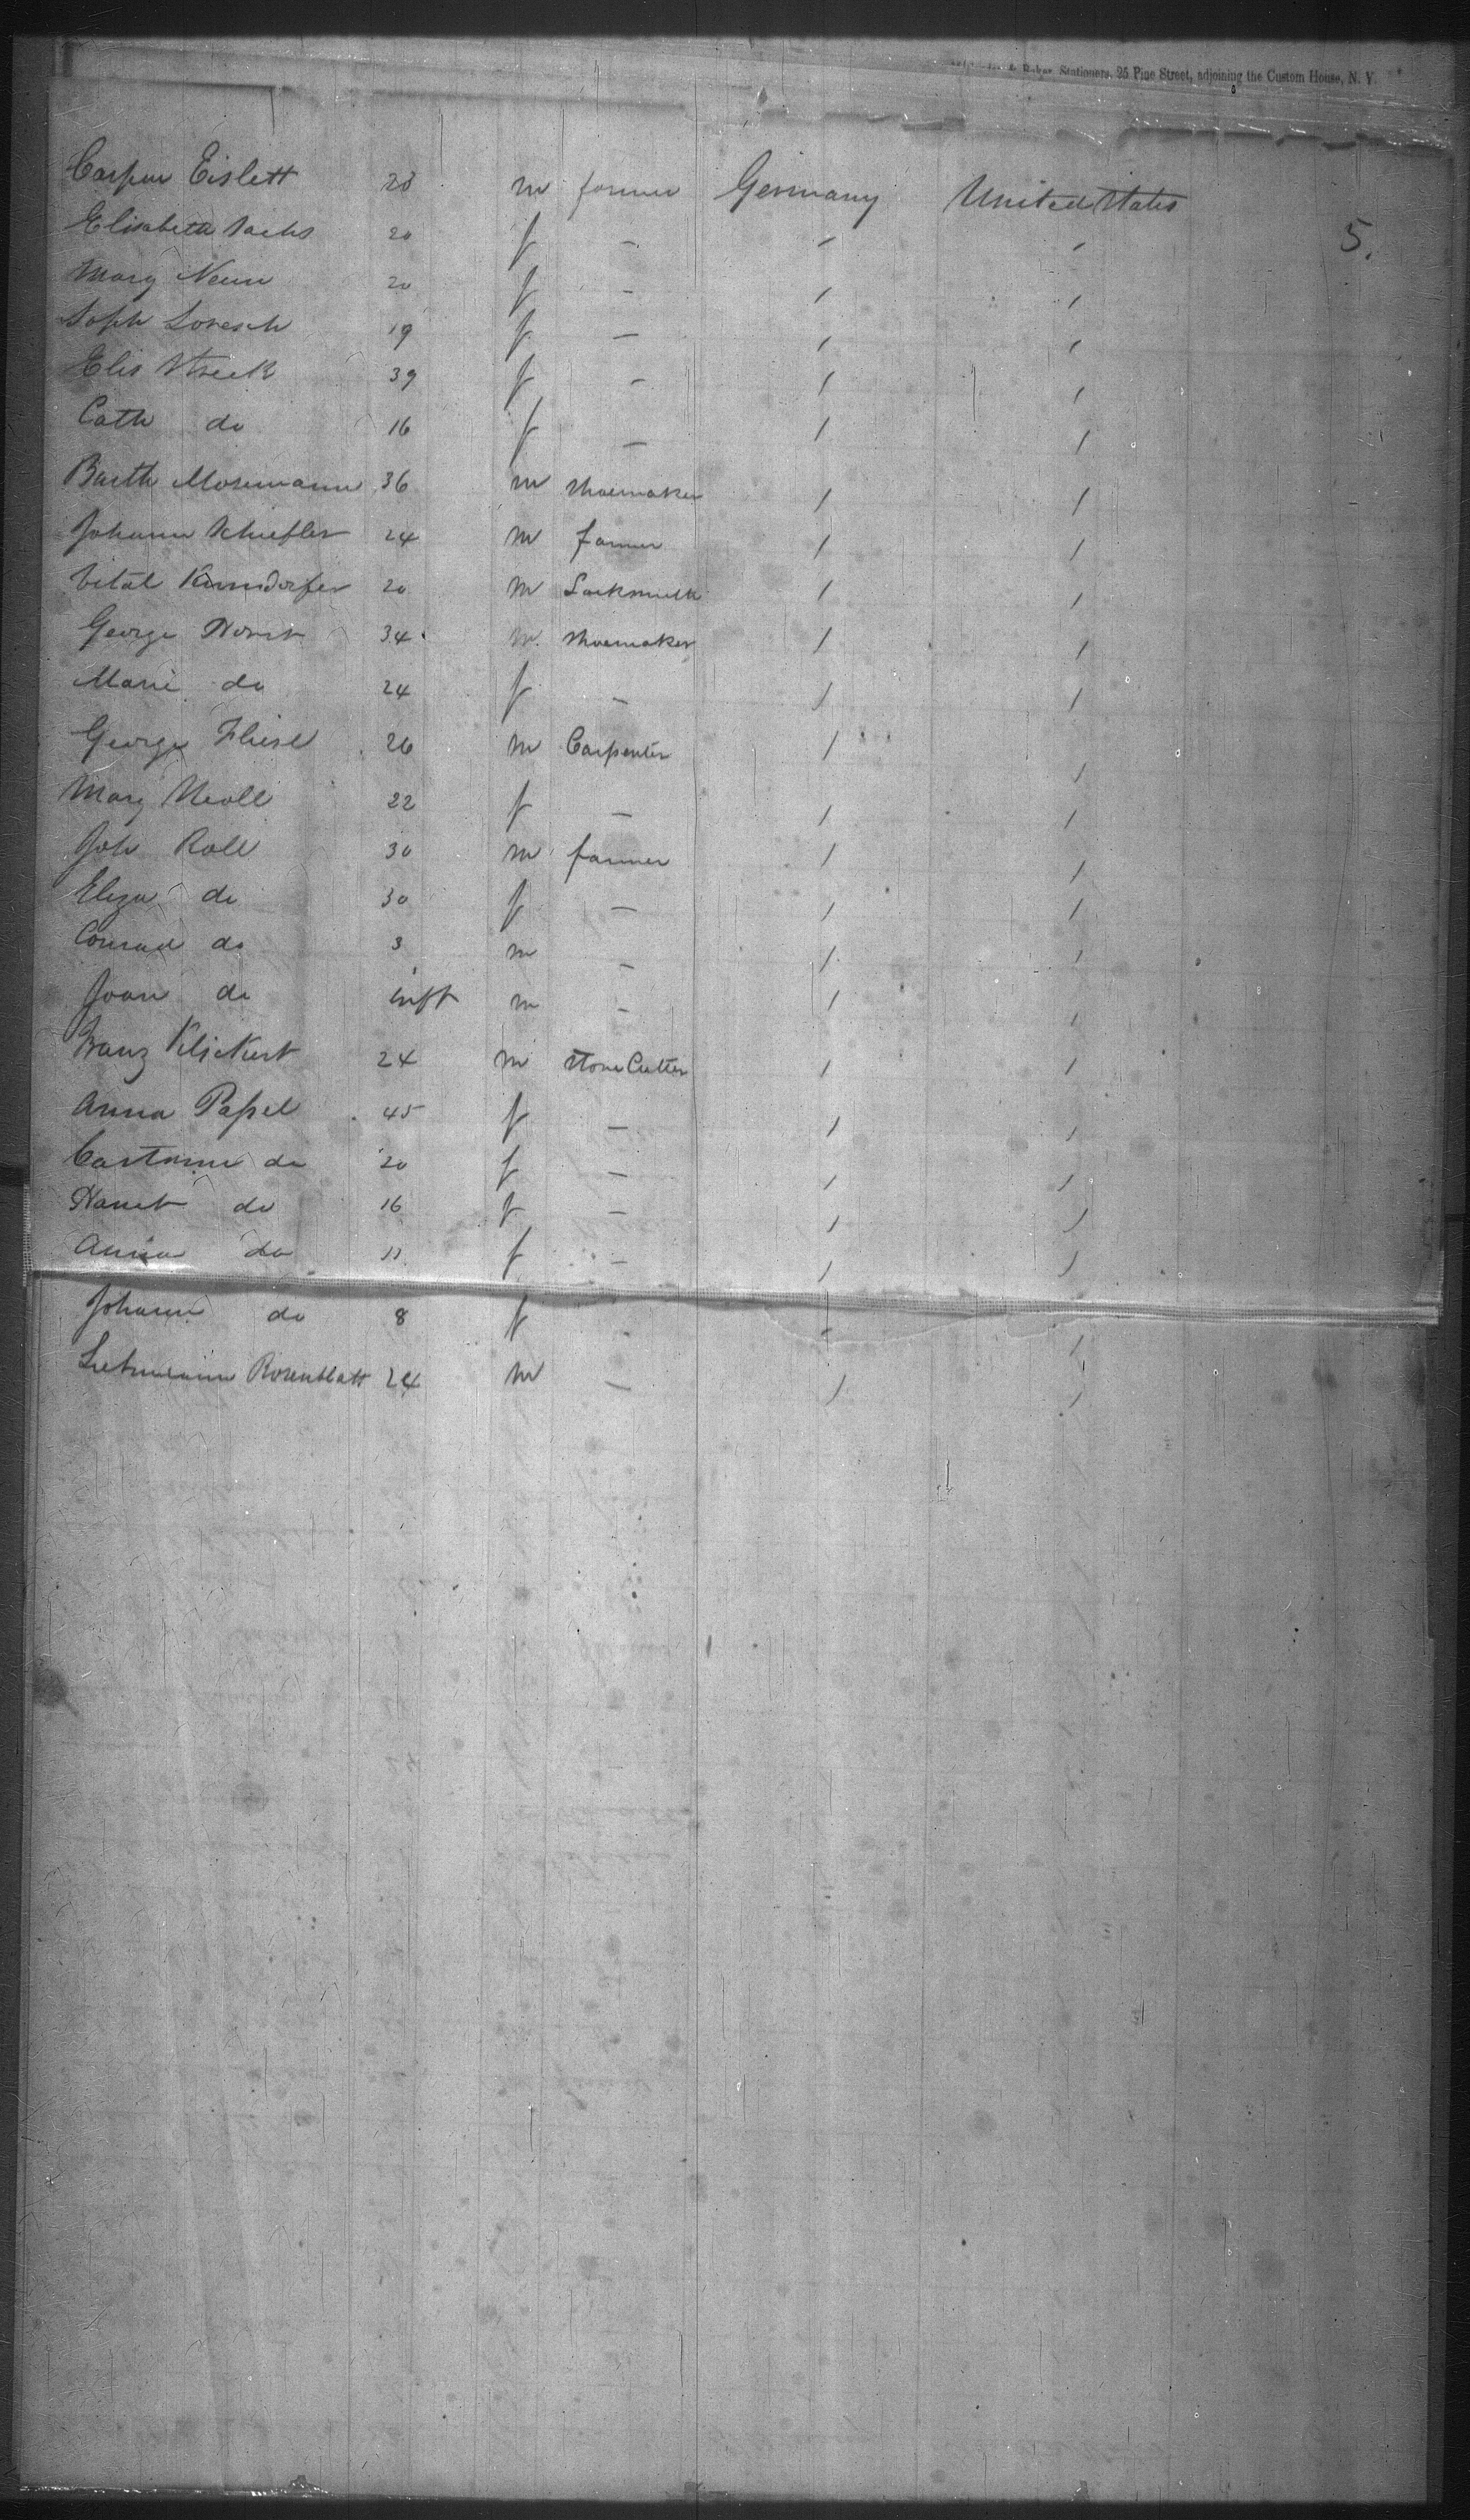 Baker, Stationers, 95 Pine Street, adjoining the Custom House, N. Y.
Caspar Eislett 28 m farmer Germany United States
5.
Elisabeth Sachs 20 f - / /
Mary Neun 20 f - / /
Soph Loresch 19 f - / /
Elis Streck 39 f - / /
Cath do 16 f - / /
Barth Mosemann 36 m Shoemaker / /
Johann Schiefler 24 m farmer / /
Vital 20 m Locksmith / /
George Horst 34 m Shoemaker / /
Marie do 24 f - / /
George Fliesl 26 m Carpenter / /
Mary 22 f - / /
Joh Roll 30 m farmer / /
Eliza do 30 f - / /
Conrad do 3 m - / /
Joan do inft m - / /
Franz Klickert 24 m Stone Cutter / /
Anna Papel 45 f - / /
do 20 f - / /
Hanet do 16 f - / /
Anna do 11 f - / /
Johann do 8 f - / /
Rosenblatt 24 m - / /